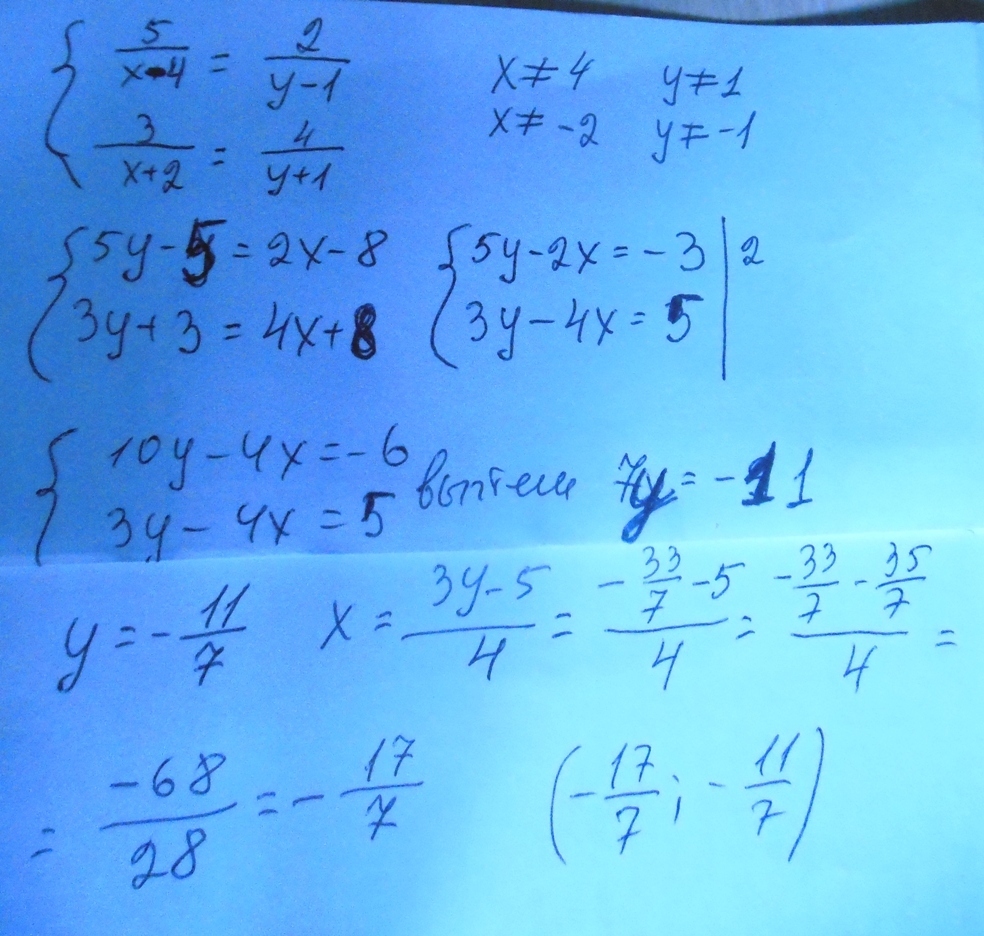 { 5/(x-4) = 2/(y-1)    x≠4    y≠1
3/(x+2) = 4/(y+1)    x≠-2    y≠-1
{ 5y-5=2x-8    { 5y-2x=-3 | 2
3y+3=4x+8    3y-4x=5 |
{ 10y-4x=-6
3y-4x=5    вычтем    7y=-11
y=-11/7    x=(3y-5)/4=(-33/7-5)/4=(-33/7-35/7)/4=
=-68/28=-17/7    (-17/7; -11/7)